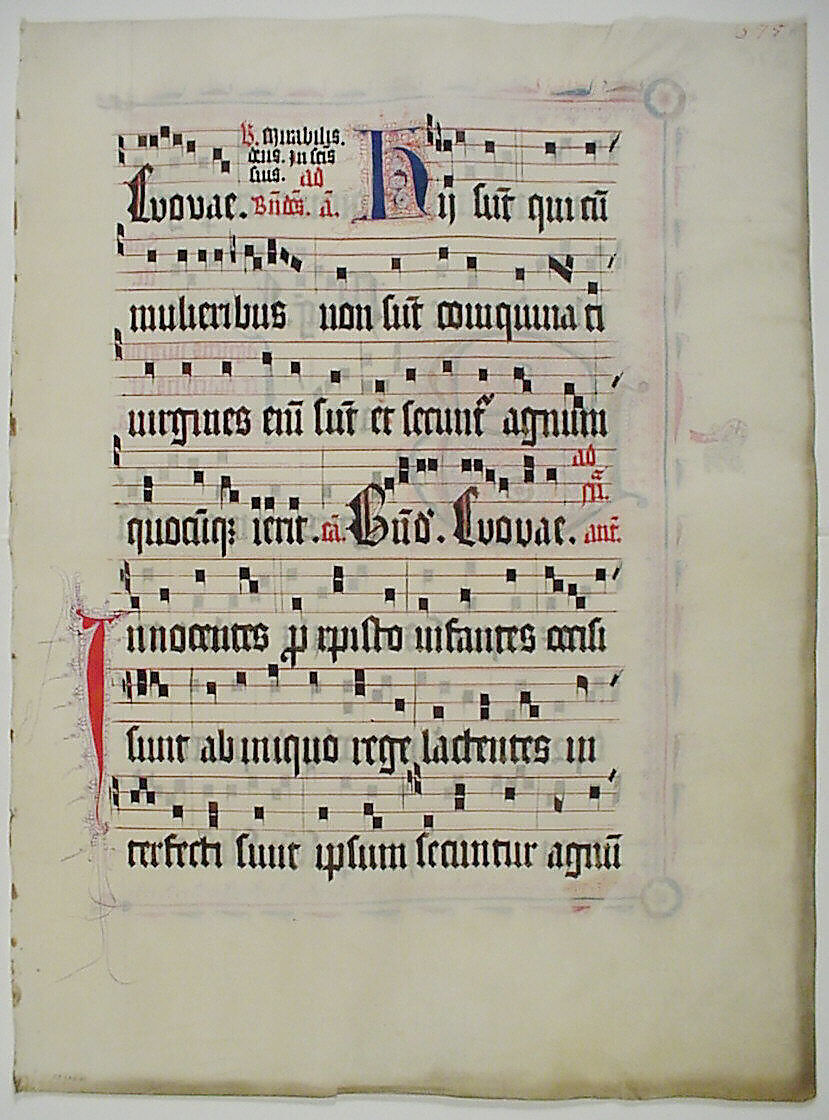 275
V. Mirabilis.
deus. in scis
suis. ad
Evovae. Bñdcs. ā. Hij sūt qui cū
mulieribus non sūt coinquinati
uirgines eiū sūt et secunt᷑ agnum
ad
quocūqꝫ ierit. cā. Bñd. Evovae. ant.
Innocentes ꝓ xpisto infantes occisi
sunt ab iniquo rege lactentes in
terfecti sunt ipsum secuntur agnū